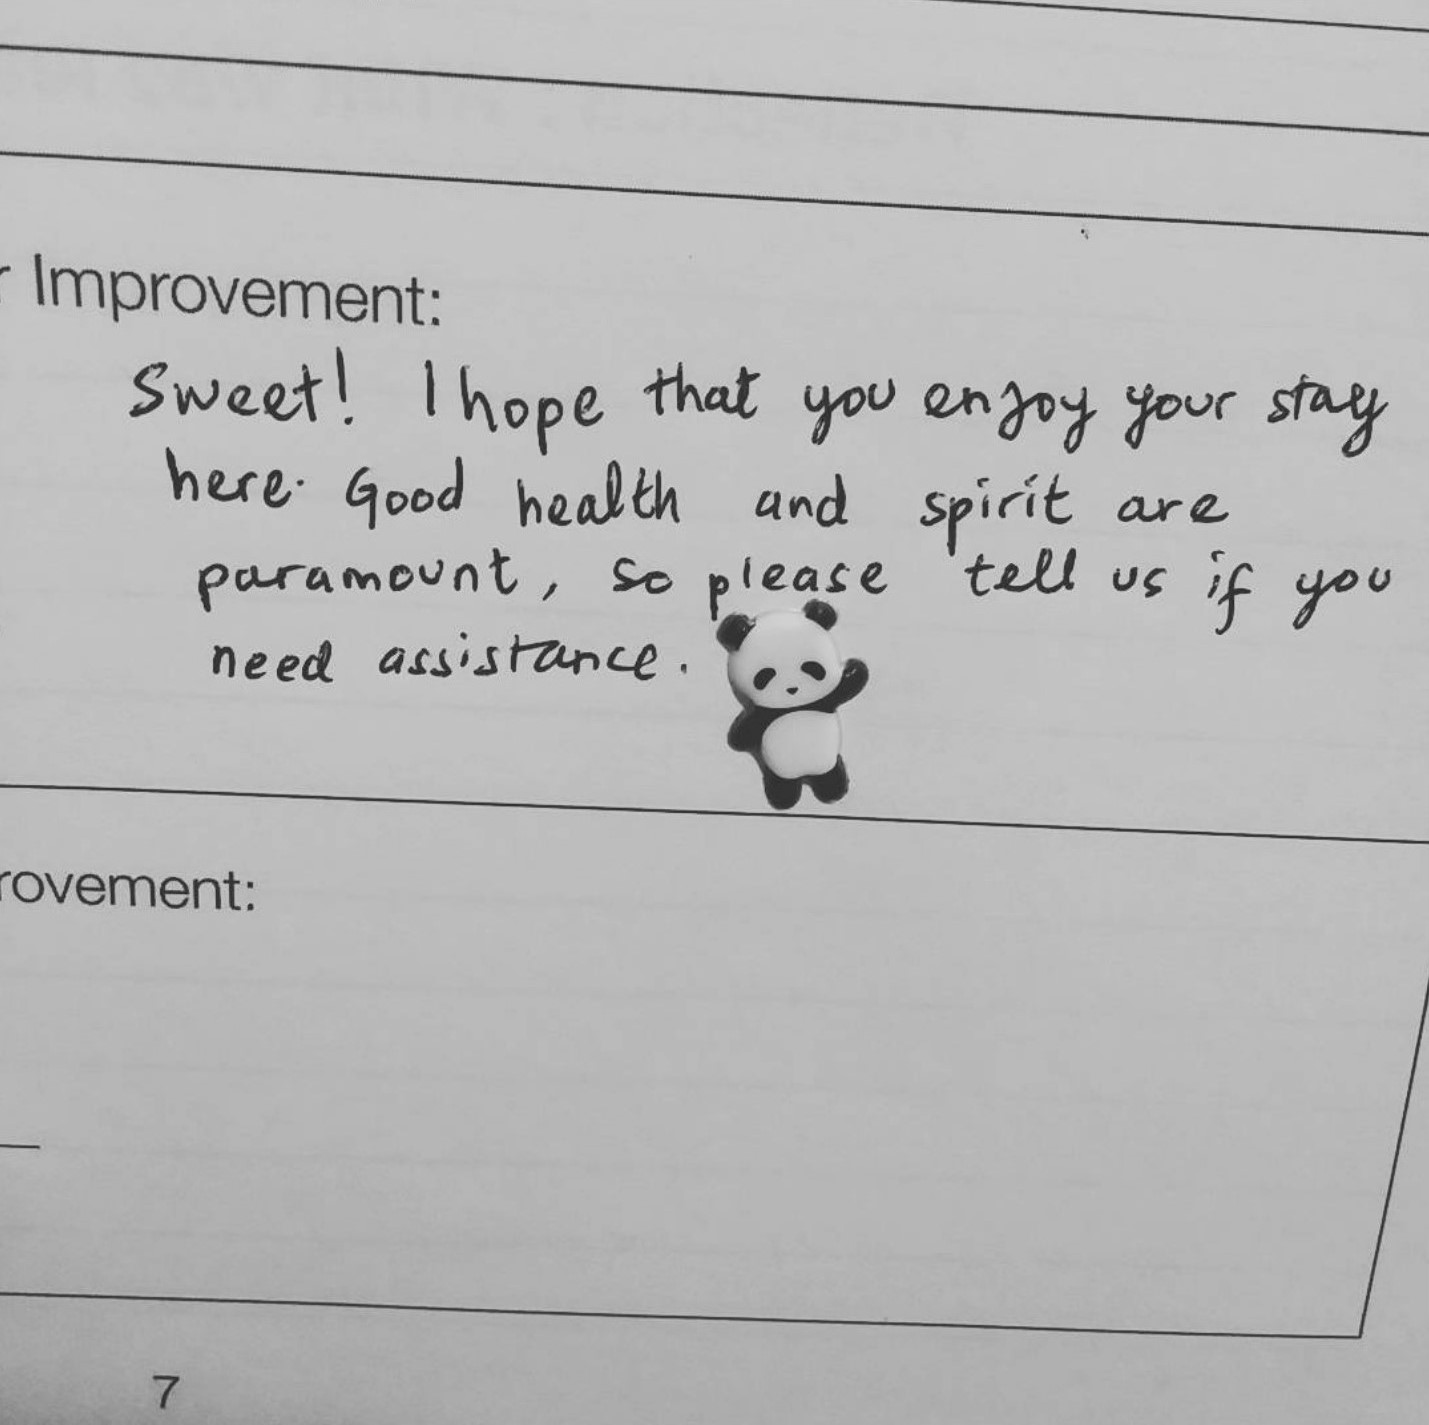 Improvement:
Sweet! I hope that you enjoy your stay
here. Good health and spirit are
paramount, so please tell us if you
need assistance.
rovement:
7